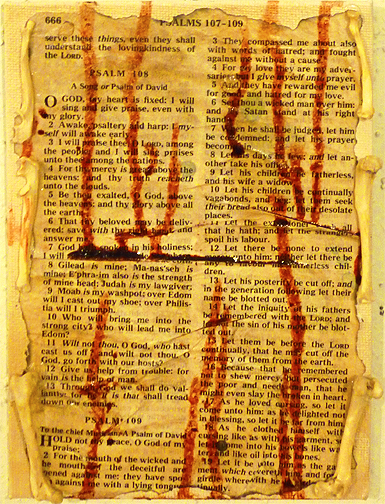 666 PSALMS 107–109
serve these things, even they shall
understand the lovingkindness of
the LORD.
PSALM 108
A Song or Psalm of David
O GOD, my heart is fixed: I will
sing and give praise, even with
my glory.
2 Awake, psaltery and harp: I my-
self will awake early.
3 I will praise thee, O LORD, among
the people: and I will sing praises
unto thee among the nations.
4 For thy mercy is great above the
heavens: and thy truth reacheth
unto the clouds.
5 Be thou exalted, O God, above
the heavens: and thy glory above all
the earth;
6 That thy beloved may be deliv-
ered: save with thy right hand, and
answer me.
7 God hath spoken in his holiness;
I will
8 Gilead is mine; Ma-nas'seh is
mine; Ephra-im also is the strength
of mine head; Judah is my lawgiver;
9 Moab is my washpot; over Edom
will I cast out my shoe; over Philis-
tia will I triumph.
10 Who will bring me into the
strong city? who will lead me into
Edom?
11 Wilt not thou, O God, who hast
cast us off? and wilt not thou, O
God, go forth with our hosts?
12 Give us help from trouble: for
vain is the help of man.
13 Through God we shall do val-
iantly: for he it is that shall tread
down our
PSALM 109
To the chief Musician, A Psalm of David
HOLD not thy peace, O God of my
praise;
2 For the mouth of the wicked and
the mouth of the deceitful are
opened against me: they have spo-
ken against me with a lying tongue.
3 They compassed me about also
with words of hatred; and fought
against me without a cause.
4 For my love they are my adver-
saries: but I give myself unto prayer.
5 And they have rewarded me evil
for good, and hatred for my love.
6 Set thou a wicked man over him:
and let Satan stand at his right
hand.
7 When he shall be judged, let him
be condemned: and let his prayer
become sin.
8 Let his days be few; and let an-
other take his office.
9 Let his children be fatherless,
and his wife a widow.
10 Let his children be continually
vagabonds, and beg: let them seek
their bread also out of their desolate
places.
11 Let the extortioner catch all
that he hath; and let the strangers
spoil his labour.
12 Let there be none to extend
mercy unto him: neither let there be
any to favour his fatherless chil-
dren.
13 Let his posterity be cut off; and
in the generation following let their
name be blotted out.
14 Let the iniquity of his fathers
be remembered with the LORD; and
let not the sin of his mother be blot-
ted out.
15 Let them be before the LORD
continually, that he may cut off the
memory of them from the earth.
16 Because that he remembered
not to shew mercy, but persecuted
the poor and needy man, that he
might even slay the broken in heart.
17 As he loved cursing, so let it
come unto him: as he delighted not
in blessing, so let it be far from him.
18 As he clothed himself with
cursing like as with his garment, so
let it come into his bowels like water,
and like oil into his bones.
19 Let it be unto him as the gar-
ment which covereth him, and for